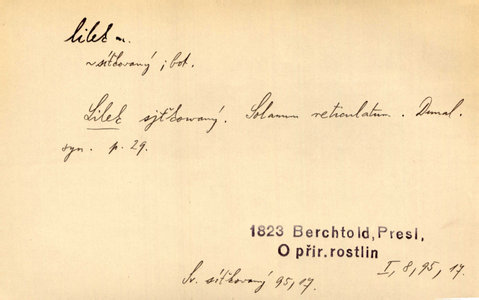 lilek m.
~ síťkovaný ; bot.
Lilek sjťkowaný. Solanum reticulatum. Dunal.
syn. p. 29.
1823 Berchtold, Presl,
O přir. rostlin
I, 8, 95, 17.
Sv. síťkovaný 95, 17.